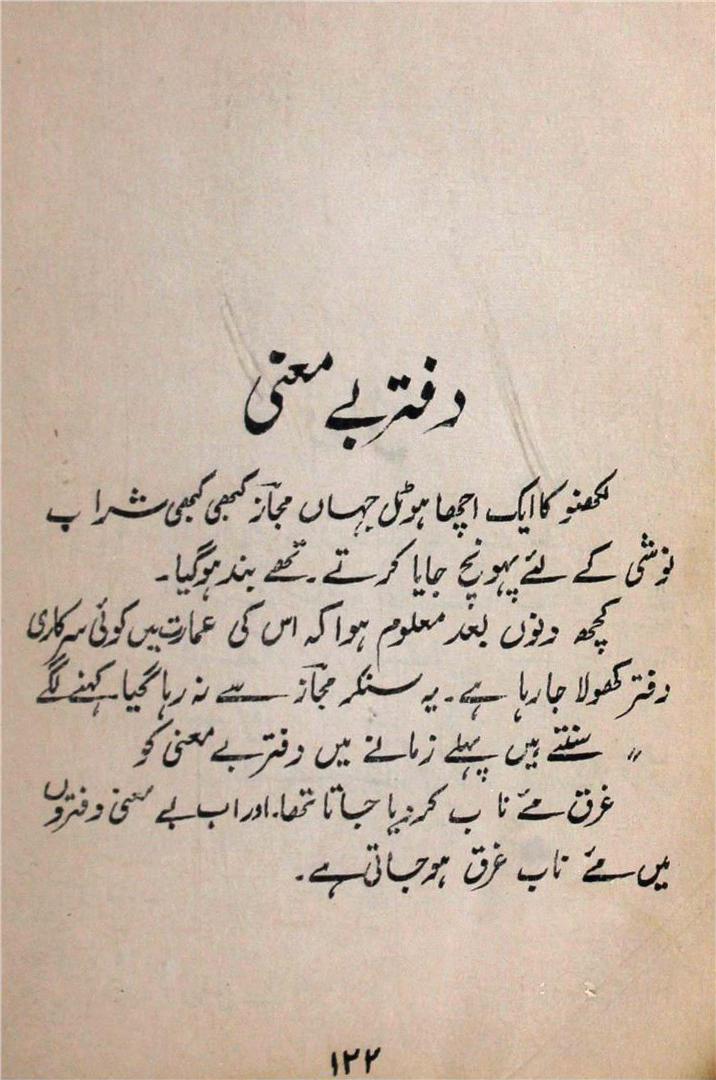 دفتر بے معنی
لکھنو کا ایک اچھا ہوٹل جہاں مجازؔ کبھی کبھی شراب
نوشی کے لئے پہونچ جایا کرتے ۔ تھے بند ہوگیا۔
کچھ دنوں بعد معلوم ہوا کہ اس کی عمارت میں کوئی سرکاری
دفتر کھولا جا رہا ہے۔ یہ سنکر مجازؔ سے نہ رہا گیا۔ کہنے لگے
" سنتے ہیں پہلے زمانے میں دفتر بے معنی کو
غرق مئے ناب کر دیا جاتا تھا۔ اور اب بے معنی دفتروں
میں مئے ناب غرق ہو جاتی ہے۔
۱۲۲